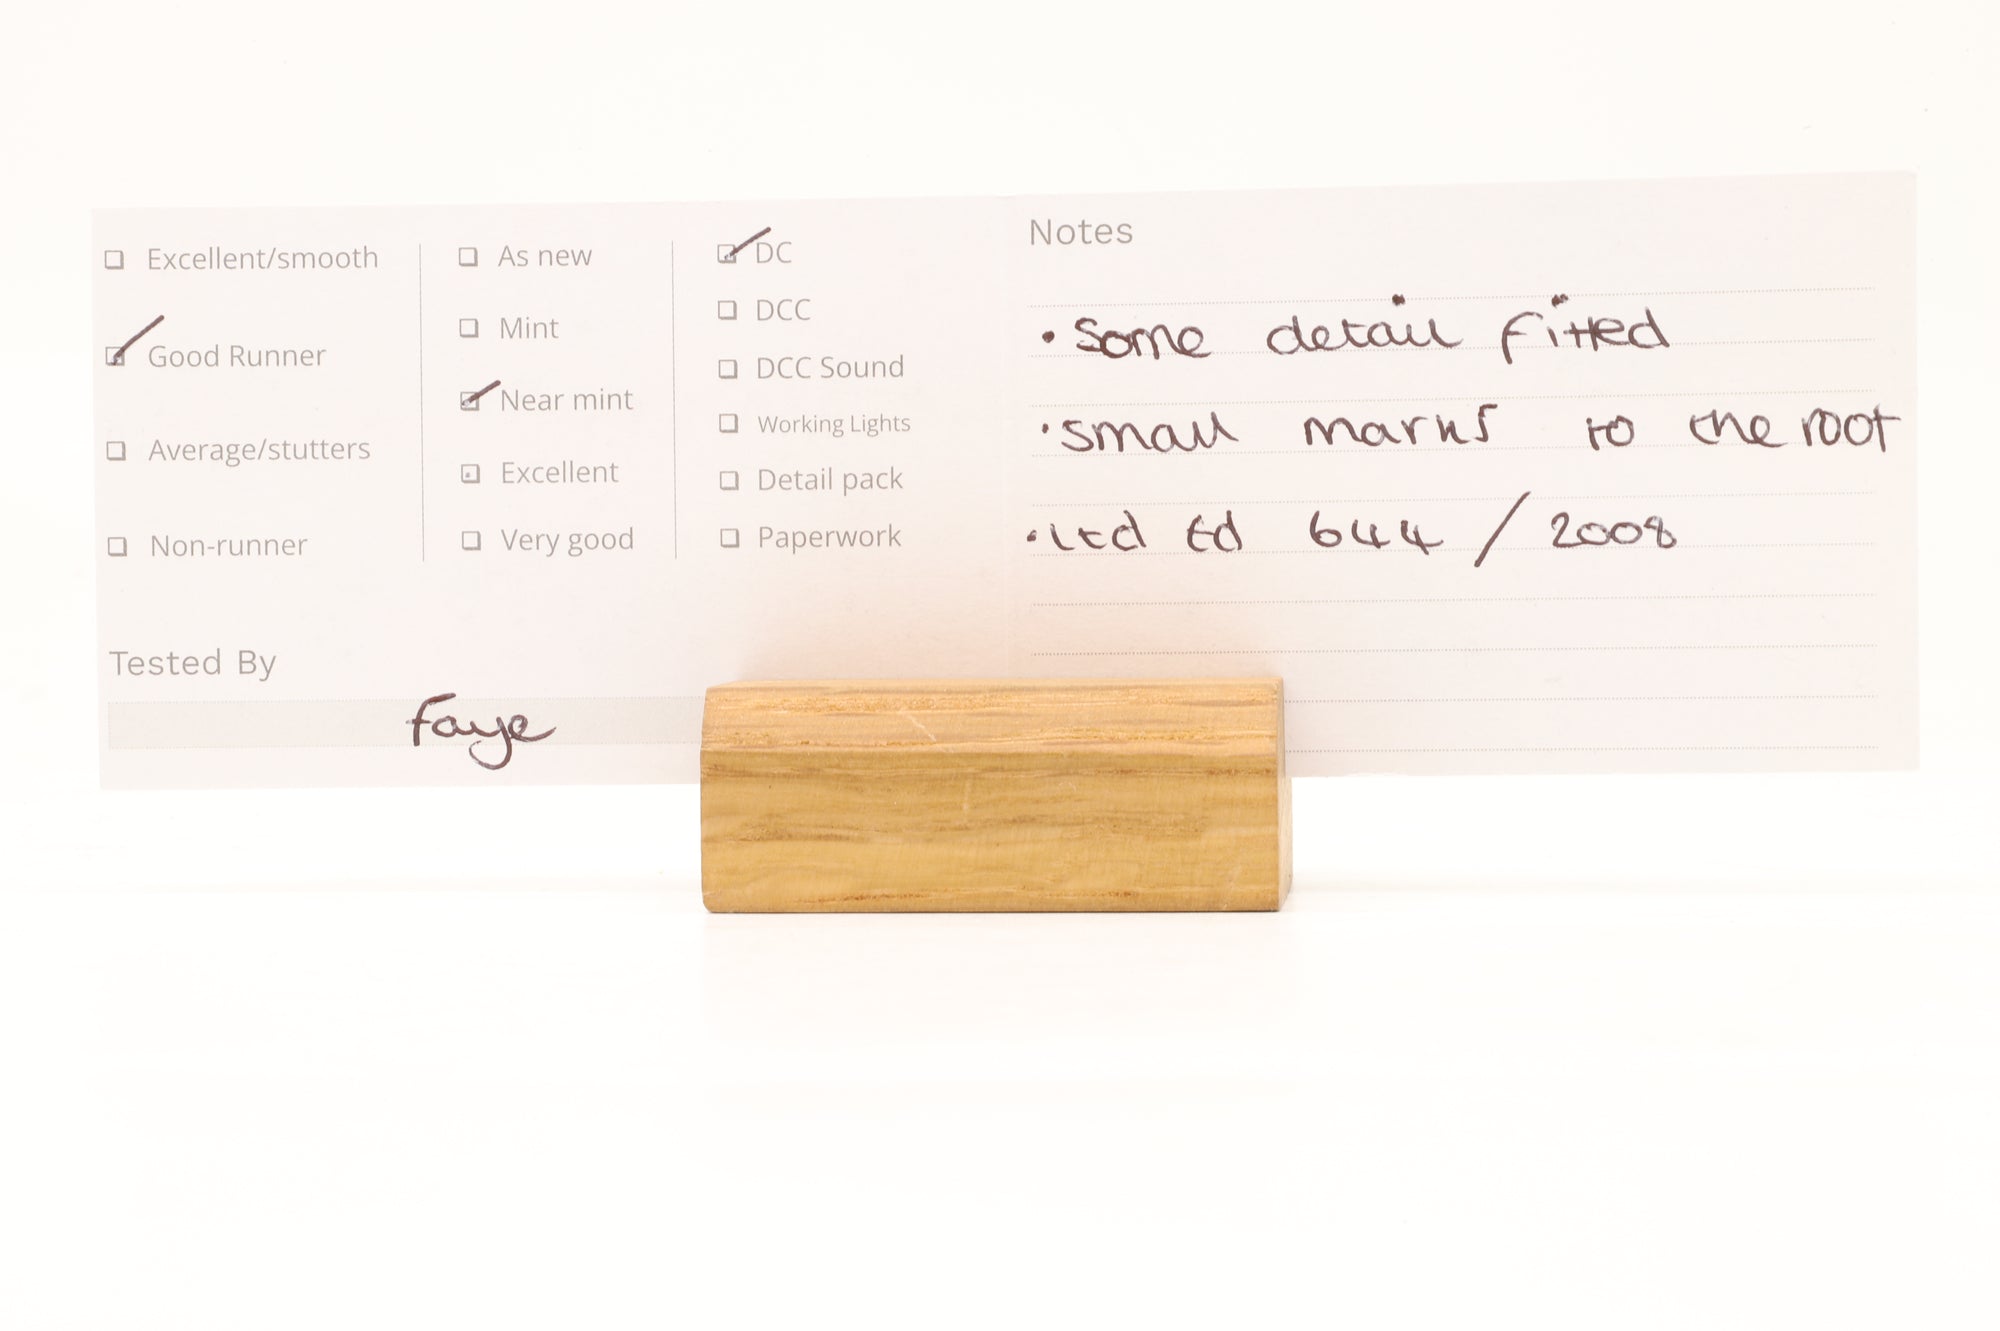 Excellent/smooth
Good Runner
Average/stutters
Non-runner
As new
Mint
Near mint
Excellent
Very good
DC
DCC
DCC Sound
Working Lights
Detail pack
Paperwork
Tested By
Faye
Notes
• Some detail fitted
• small marks to the roof
• Ltd Ed 644 / 2008